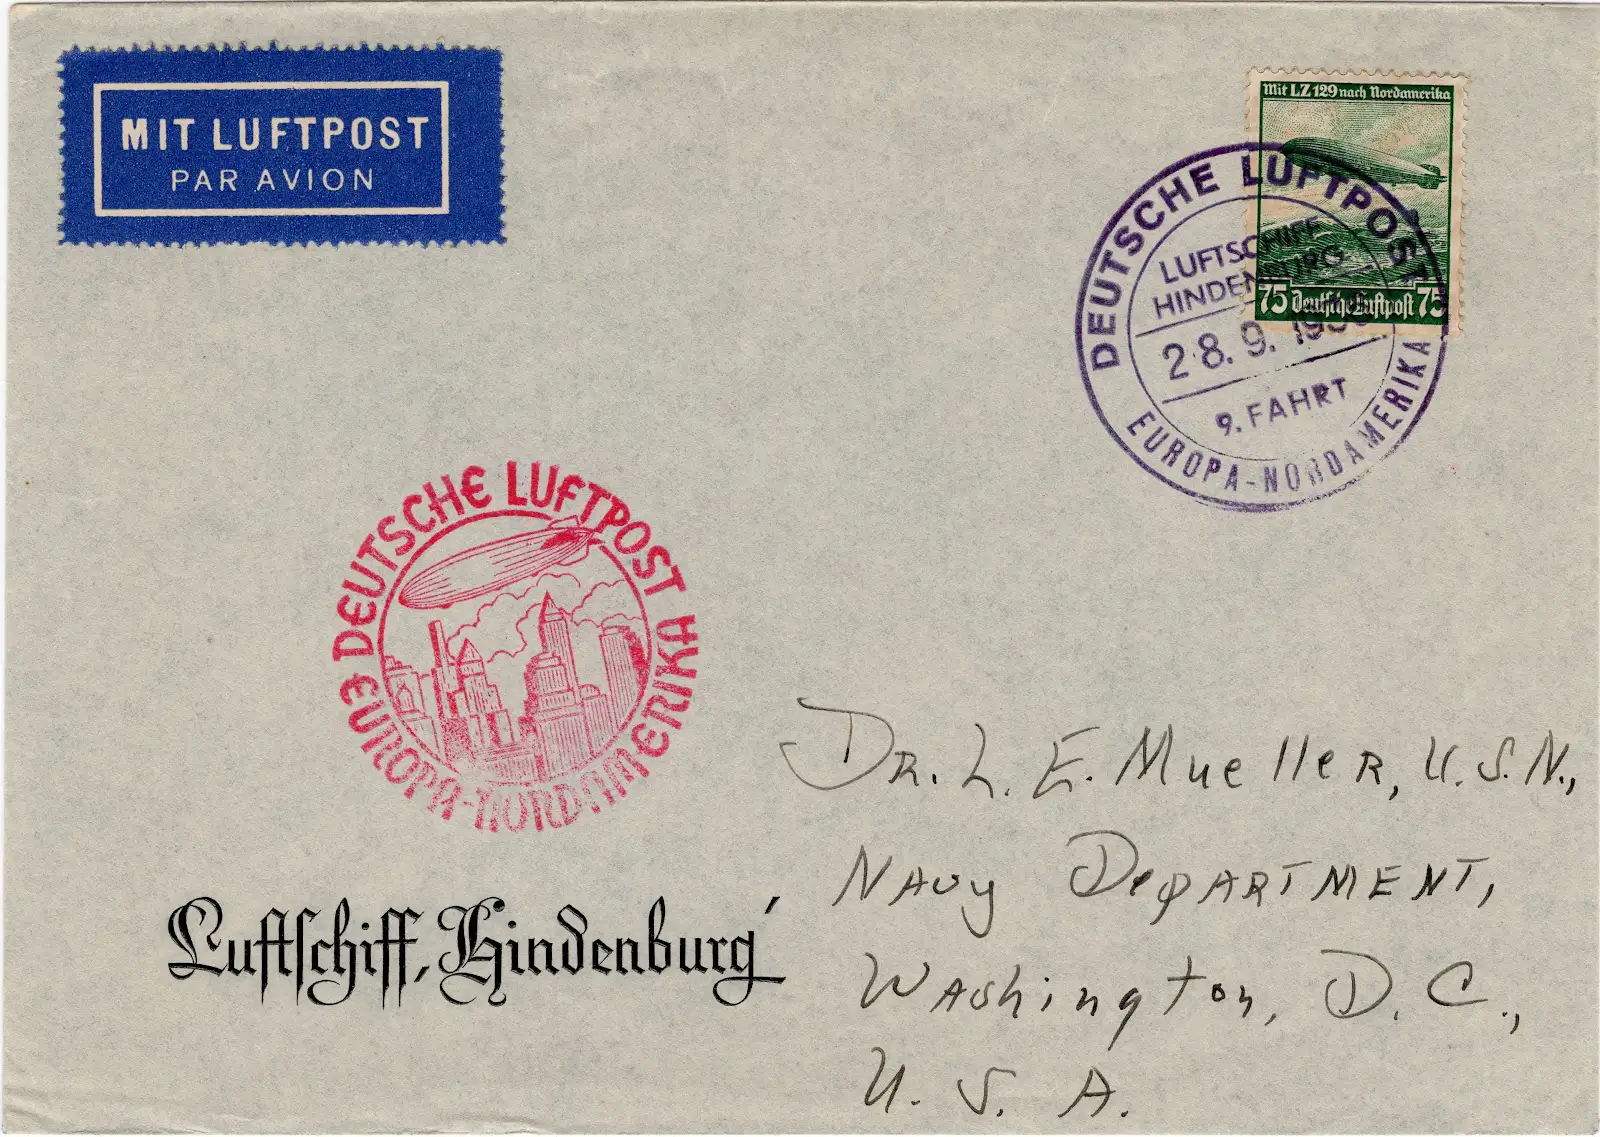 MIT LUFTPOST
PAR AVION
Mit LZ 129 nach Nordamerika
75 Deutsche Luftpost 75
DEUTSCHE LUFTPOST
LUFTSCHIFF
HINDENBURG
28.9.1936
9. FAHRT
EUROPA-NORDAMERIKA
DEUTSCHE LUFTPOST
EUROPA-NORDAMERIKA
Luftschiff ,Hindenburg'
Dr. L. E. Mueller, U.S.N.,
Navy Department,
Washington, D.C.,
U. S. A.